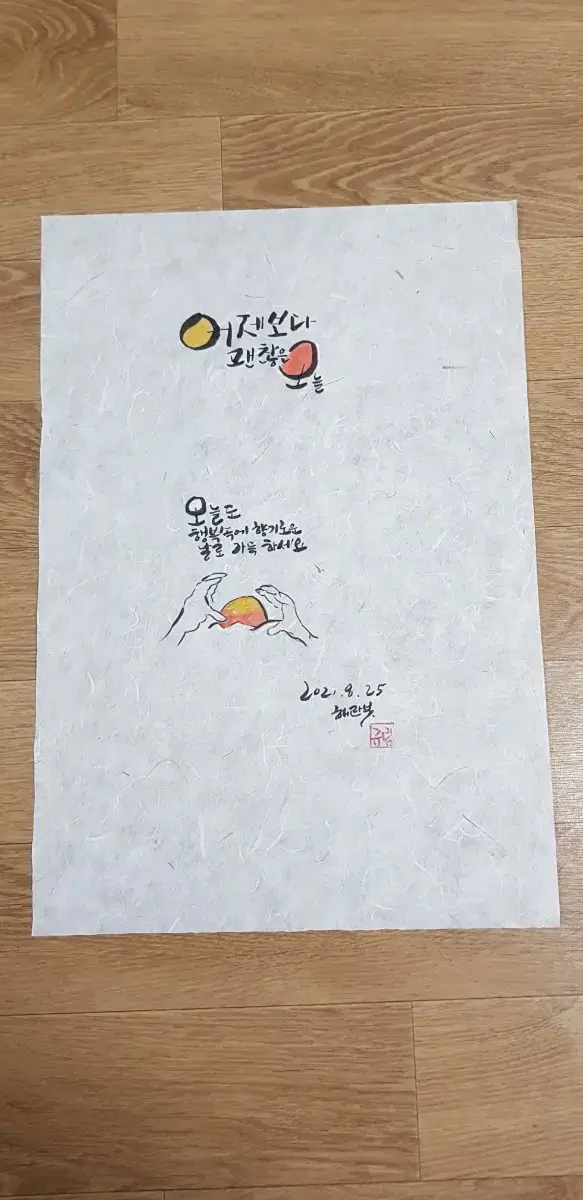 어제보다
괜찮은
오늘
오늘도
행복속에 향기로운
날로 가득 하세요
2021.8.25